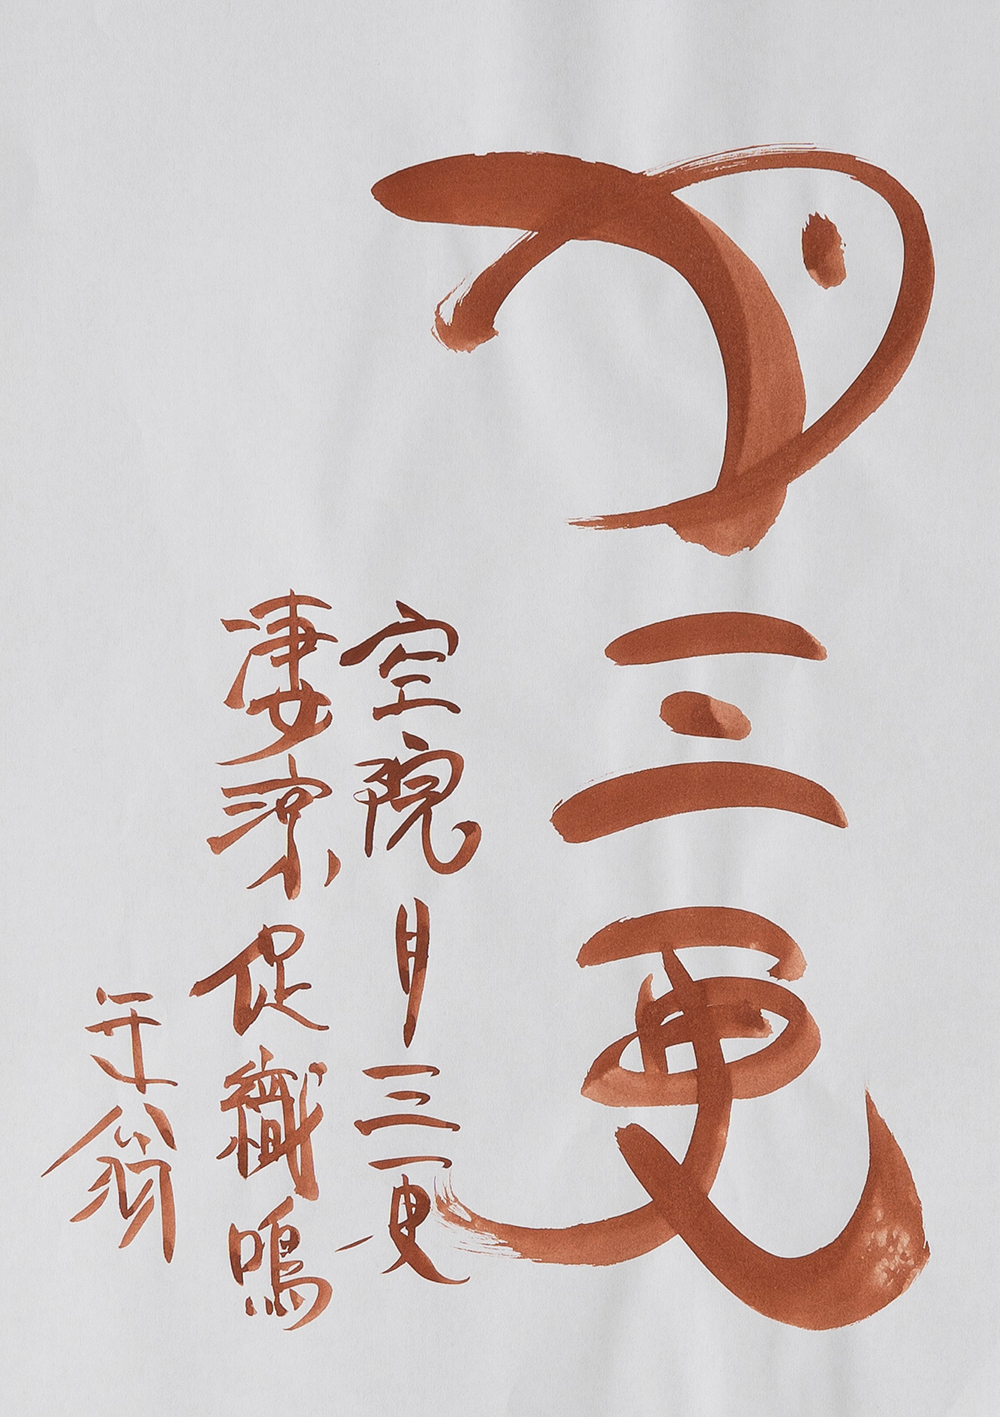 月三更
空院月三更
凄涼促織鳴
翁